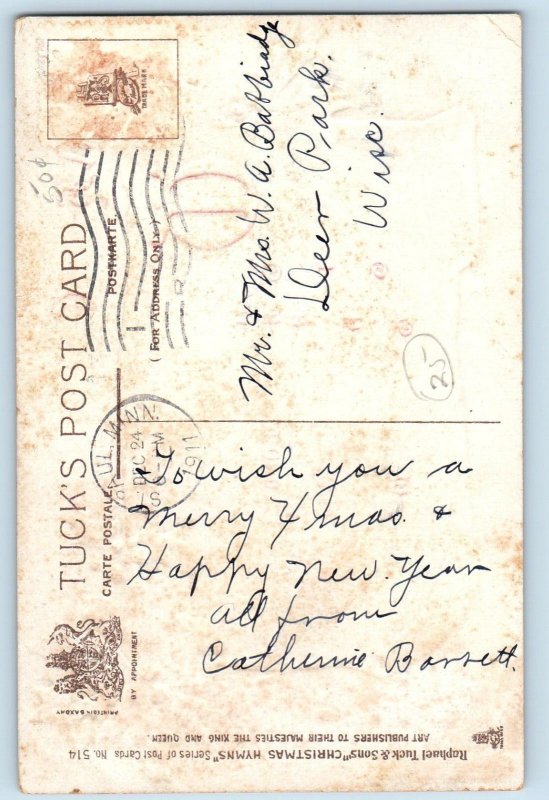 TUCK'S POST CARD
CARTE POSTALE
POSTKARTE
( FOR ADDRESS ONLY )
TRADE MARK
BY APPOINTMENT
PRINTED IN SAXONY
50¢
PAUL, MINN.
DEC 24
PM
1911
Mr. & Mrs. W. A.
Deer Park.
Wisc.
25
To wish you a
Merry Xmas. &
Happy New Year
all from
Catherine Barrett.
Raphael Tuck & Sons' "CHRISTMAS HYMNS" Series of Post Cards No. 514
ART PUBLISHERS TO THEIR MAJESTIES THE KING AND QUEEN.